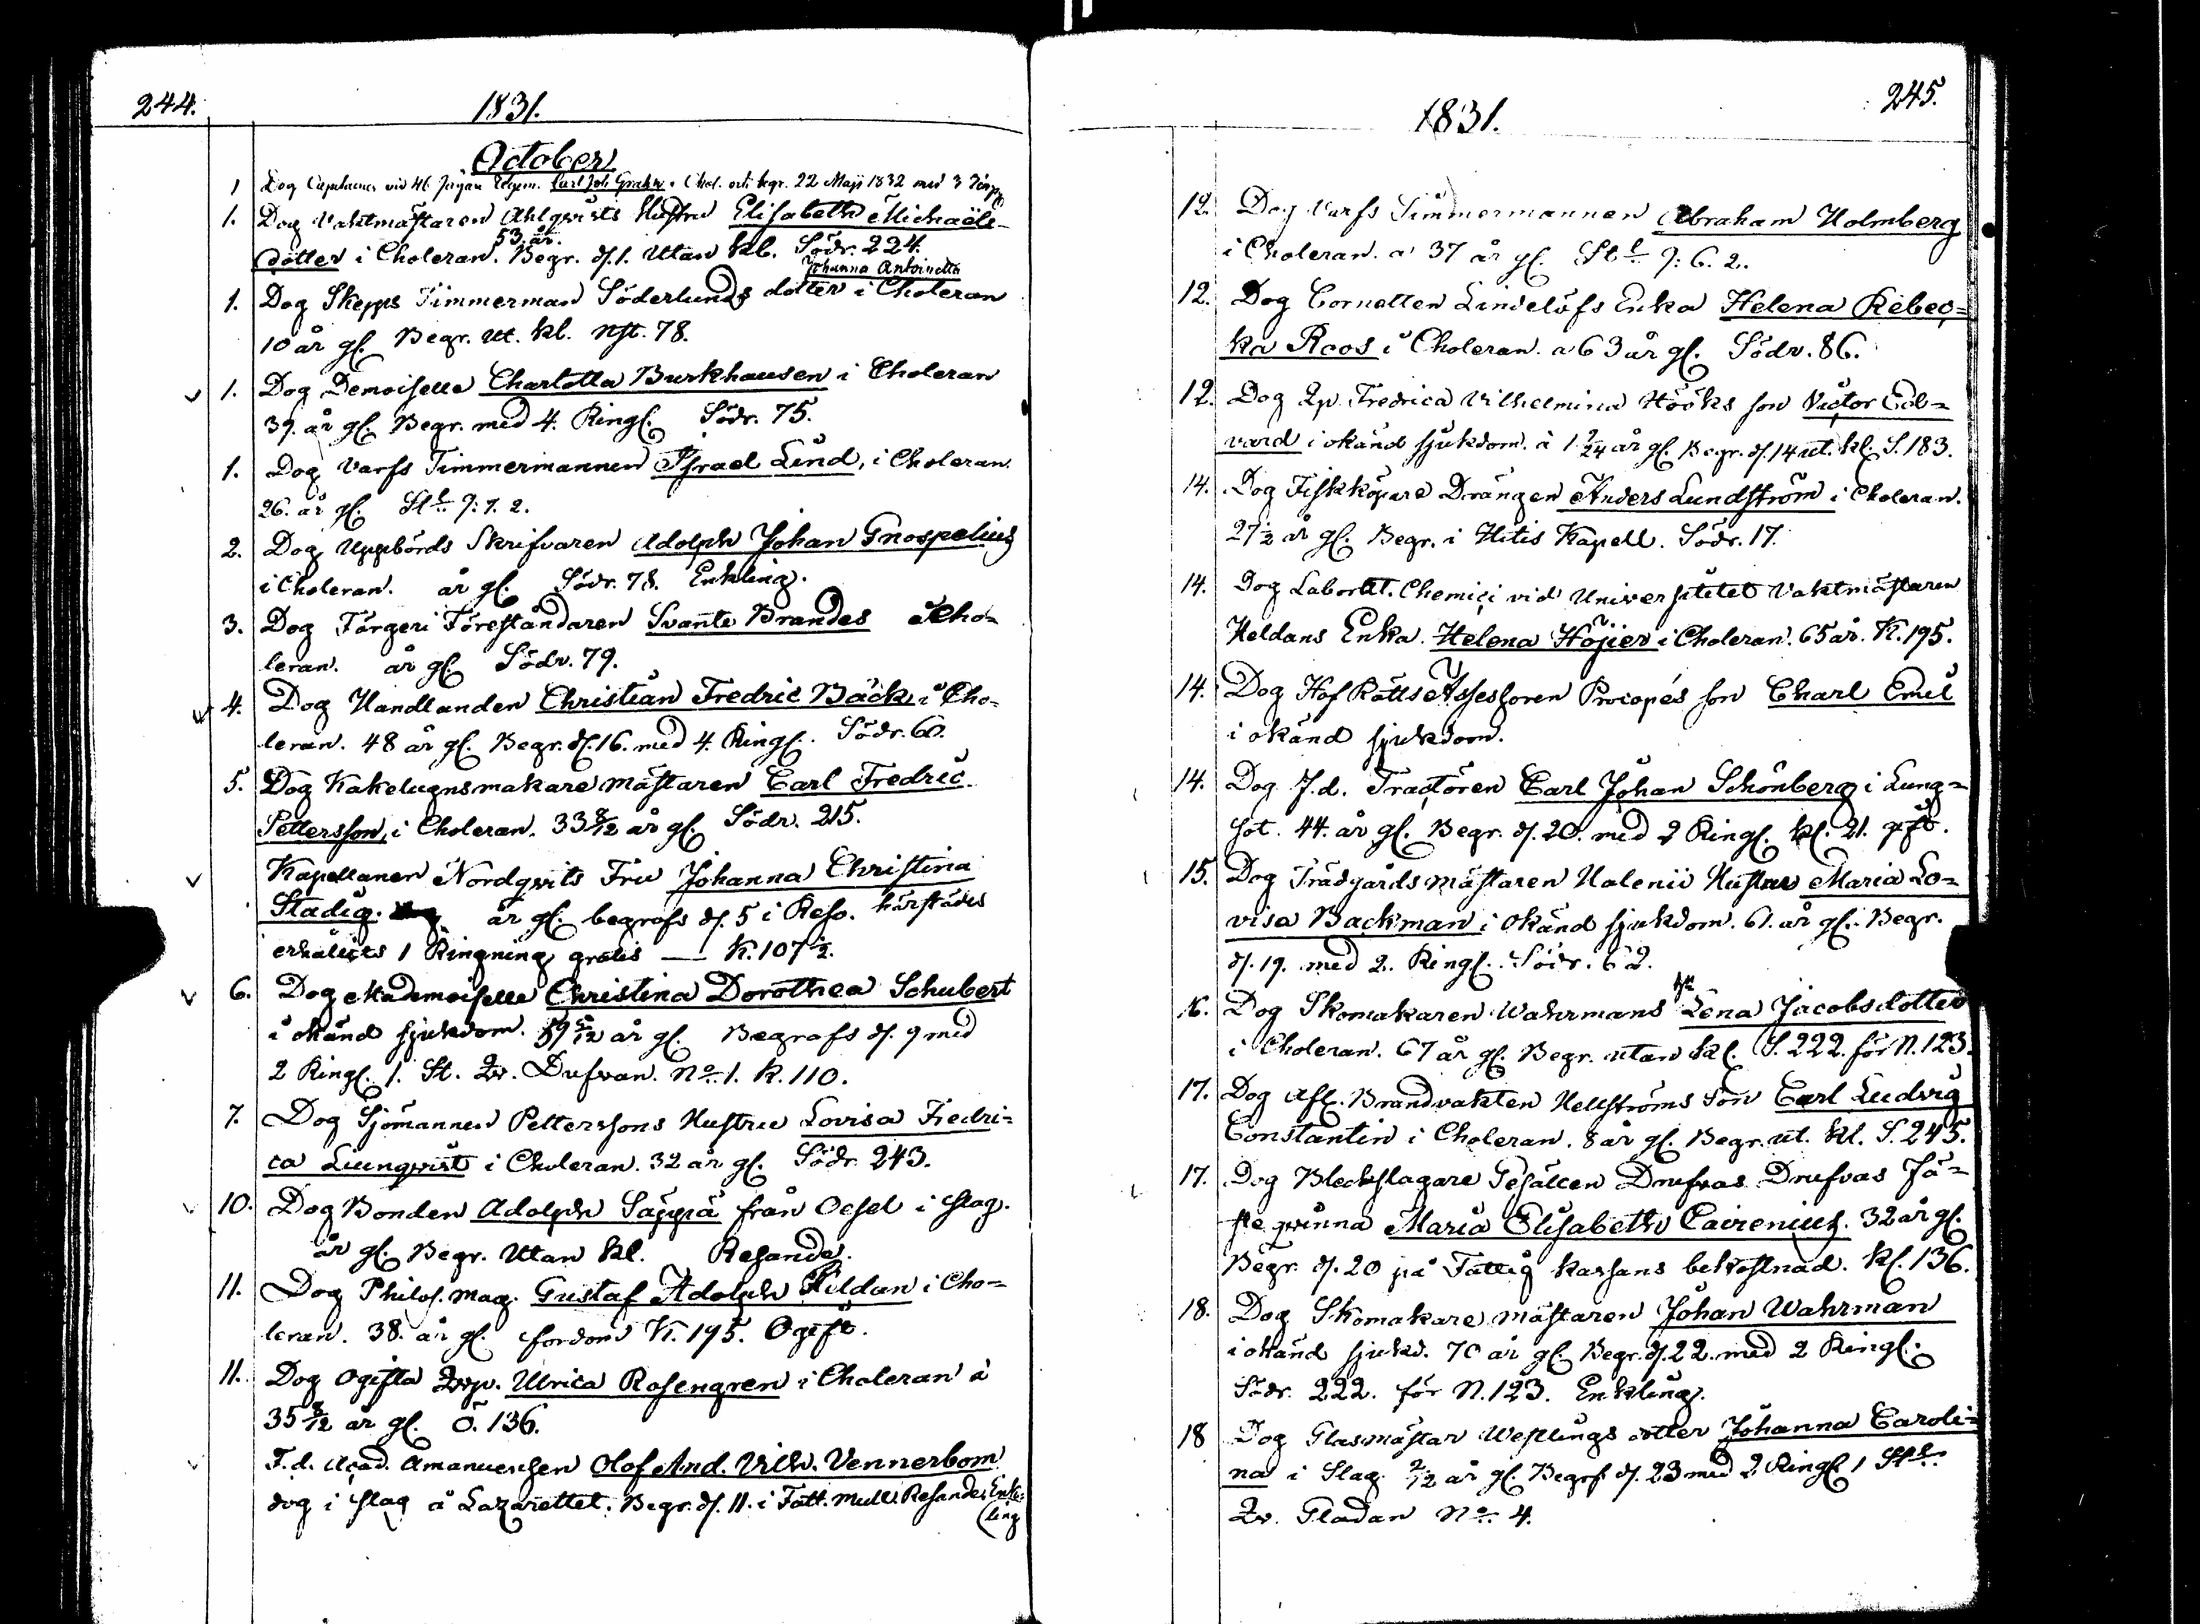 244.
1831.
October
1 Dog Capitainen vid 46 Jägare Regem. Carl Joh Grahn i Chol. och begr. 22 Maji 1832 med 3
1. Dog Vaktmästaren Ahlqvists Hustru Elisabeth Michaëls-
dotter i Choleran. 53 år. Begr. d. 1. Utan kl. Södr. 224.
Johanna Antoinetta
1. Dog Skepps Timmerman Söderlunds dotter i Choleran
10 år gl. Begr. ut. kl. Nst. 78.
1. Dog Demoiselle Charlotta Burkhausen i Choleran
39. år gl. Begr. med 4. Ringl. Södr. 75.
1. Dog Varfs Timmermannen Israel Lind, i Choleran.
26. år gl. St 9: 7. 2.
2. Dog Uppbörds Skrifvaren Adolph Johan Gnospelius
i Choleran. år gl. Södr. 78. Enkling.
3. Dog Färgeri Föreståndaren Svante Brandes i Cho-
leran. år gl. Södr. 79.
4. Dog Handlanden Christian Fredric Bäck, i Cho-
leran. 48 år gl. Begr. d. 16. med 4. Ringl. Södr. 60.
5. Dog Kakelugnsmakare mästaren Carl Fredric
Pettersson, i Choleran. 33 8/12 år gl. Södr. 215.
Kapellanen Nordqvits Fru Johanna Christina
Stadig. år gl. begrafs d. 5 i Reso. härstädes
erhållits 1 Ringning gratis — K. 107 1/2.
6. Dog Mademoiselle Christina Dorothea Schubert
i okänd sjukdom. 59 5/12 år gl. Begrafs d. 9 med
2 Ringl. 1. St. Qv. Dufvan. No. 1. K. 110.
7. Dog Sjömannen Petterssons Hustru Lovisa Fredri-
ca Liunqvist i Choleran. 32 år gl. Södr. 243.
10. Dog Bonden Adolph Säppä från Oesel i slag.
år gl. Begr. Utan kl. Resande.
11. Dog Philos. Mag. Gustaf Adolph Hildan i Cho-
leran. 38. år gl. fordom K. 195. Ogift.
11. Dog Ogifta Qvp. Ulrica Rosengren i Choleran à
35 8/12 år gl. Ö. 136.
F.d. Acad. Amanuensen Olof And. Vilh. Vennerbom
dog i slag å Lazarettet. Begr. d. 11. i Fatt. mull. Resande, Enk-
(ling
245.
1831.
12. Dog Varfs Timmermannen Abraham Holmberg
i Choleran. a 37 år gl. St 9: 6. 2.
12. Dog Cornetten Lindelöfs Enka Helena Rebec-
ka Roos i Choleran. a 63 år gl. Södr. 86.
12. Dog Qp. Fredrica Vilhelmina Hööks son Victor Ed-
vard i okänd sjukdom. à 1 7/24 år gl. Begr. d. 14 ut. kl. S. 183.
14. Dog Fiskköpare Drängen Anders Lundström i Choleran.
27 1/2 år gl. Begr. i Hitis Kapell. Södr. 17.
14. Dog Laborat. Chemici vid Universitetet Vaktmästaren
Heldans Enka. Helena Höjier i Choleran. 65 år. K. 195.
14. Dog Hof Rätts Assessoren Procopés son Charl Emil
i okänd sjukdom.
14. Dog F.d. Tractören Carl Johan Schönberg i Lung-
sot. 44. år gl. Begr. d. 20. med 2 Ringl. Kl. 21. gift.
15. Dog Trädgårds mästaren Halenii Hustru Maria Lo-
visa Backman i okänd sjukdom. 61. år gl. Begr.
d. 19. med 2. Ringl. Södr. 62.
16. Dog Skomakaren Wahrmans Hu Lena Jacobsdotter
i Choleran. 67 år gl. Begr. utan kl. S. 222. för N. 123.
17. Dog Afl. Brandvakten Hellströms Son Carl Ludvig
Constantin i Choleran. 8 år gl. Begr. ut. kl. S. 245.
17. Dog Bleckslagare Gesällen Drufvas Drufvas Fä-
steqvinna Maria Elisabeth Cairenius. 32 år gl.
Begr. d. 20 på Fattig kassans bekostnad. Kl. 136.
18. Dog Skomakare mästaren Johan Wahrman
i okänd sjukd. 70 år gl. Begr. d. 22. med 2 Ringl.
Södr. 222. för N. 123. Enkling.
18 Dog Glasmästar Westlings dotter Johanna Caroli-
na i Slag. 2/12 år gl. Begrf. d. 23 med 2 Ringl. 1 St
Qv. Gladan No. 4.